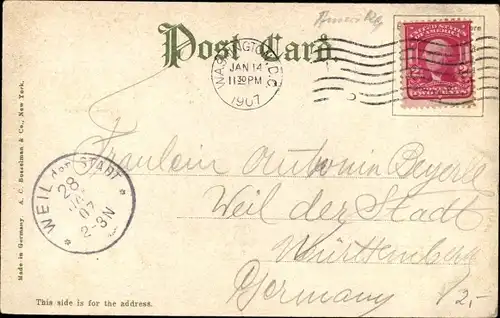 Post Card
WASHINGTON, D.C.
JAN 14
11 30 PM
1907
UNITED STATES OF AMERICA
TWO CENTS
Fräulein Antonin Beyerle
Weil der Stadt
Württemberg
Germany
1/2,-
WEIL der STADT
28
JA
07
2-3N
Made in Germany A. C. Bosselman & Co., New York.
This side is for the address.